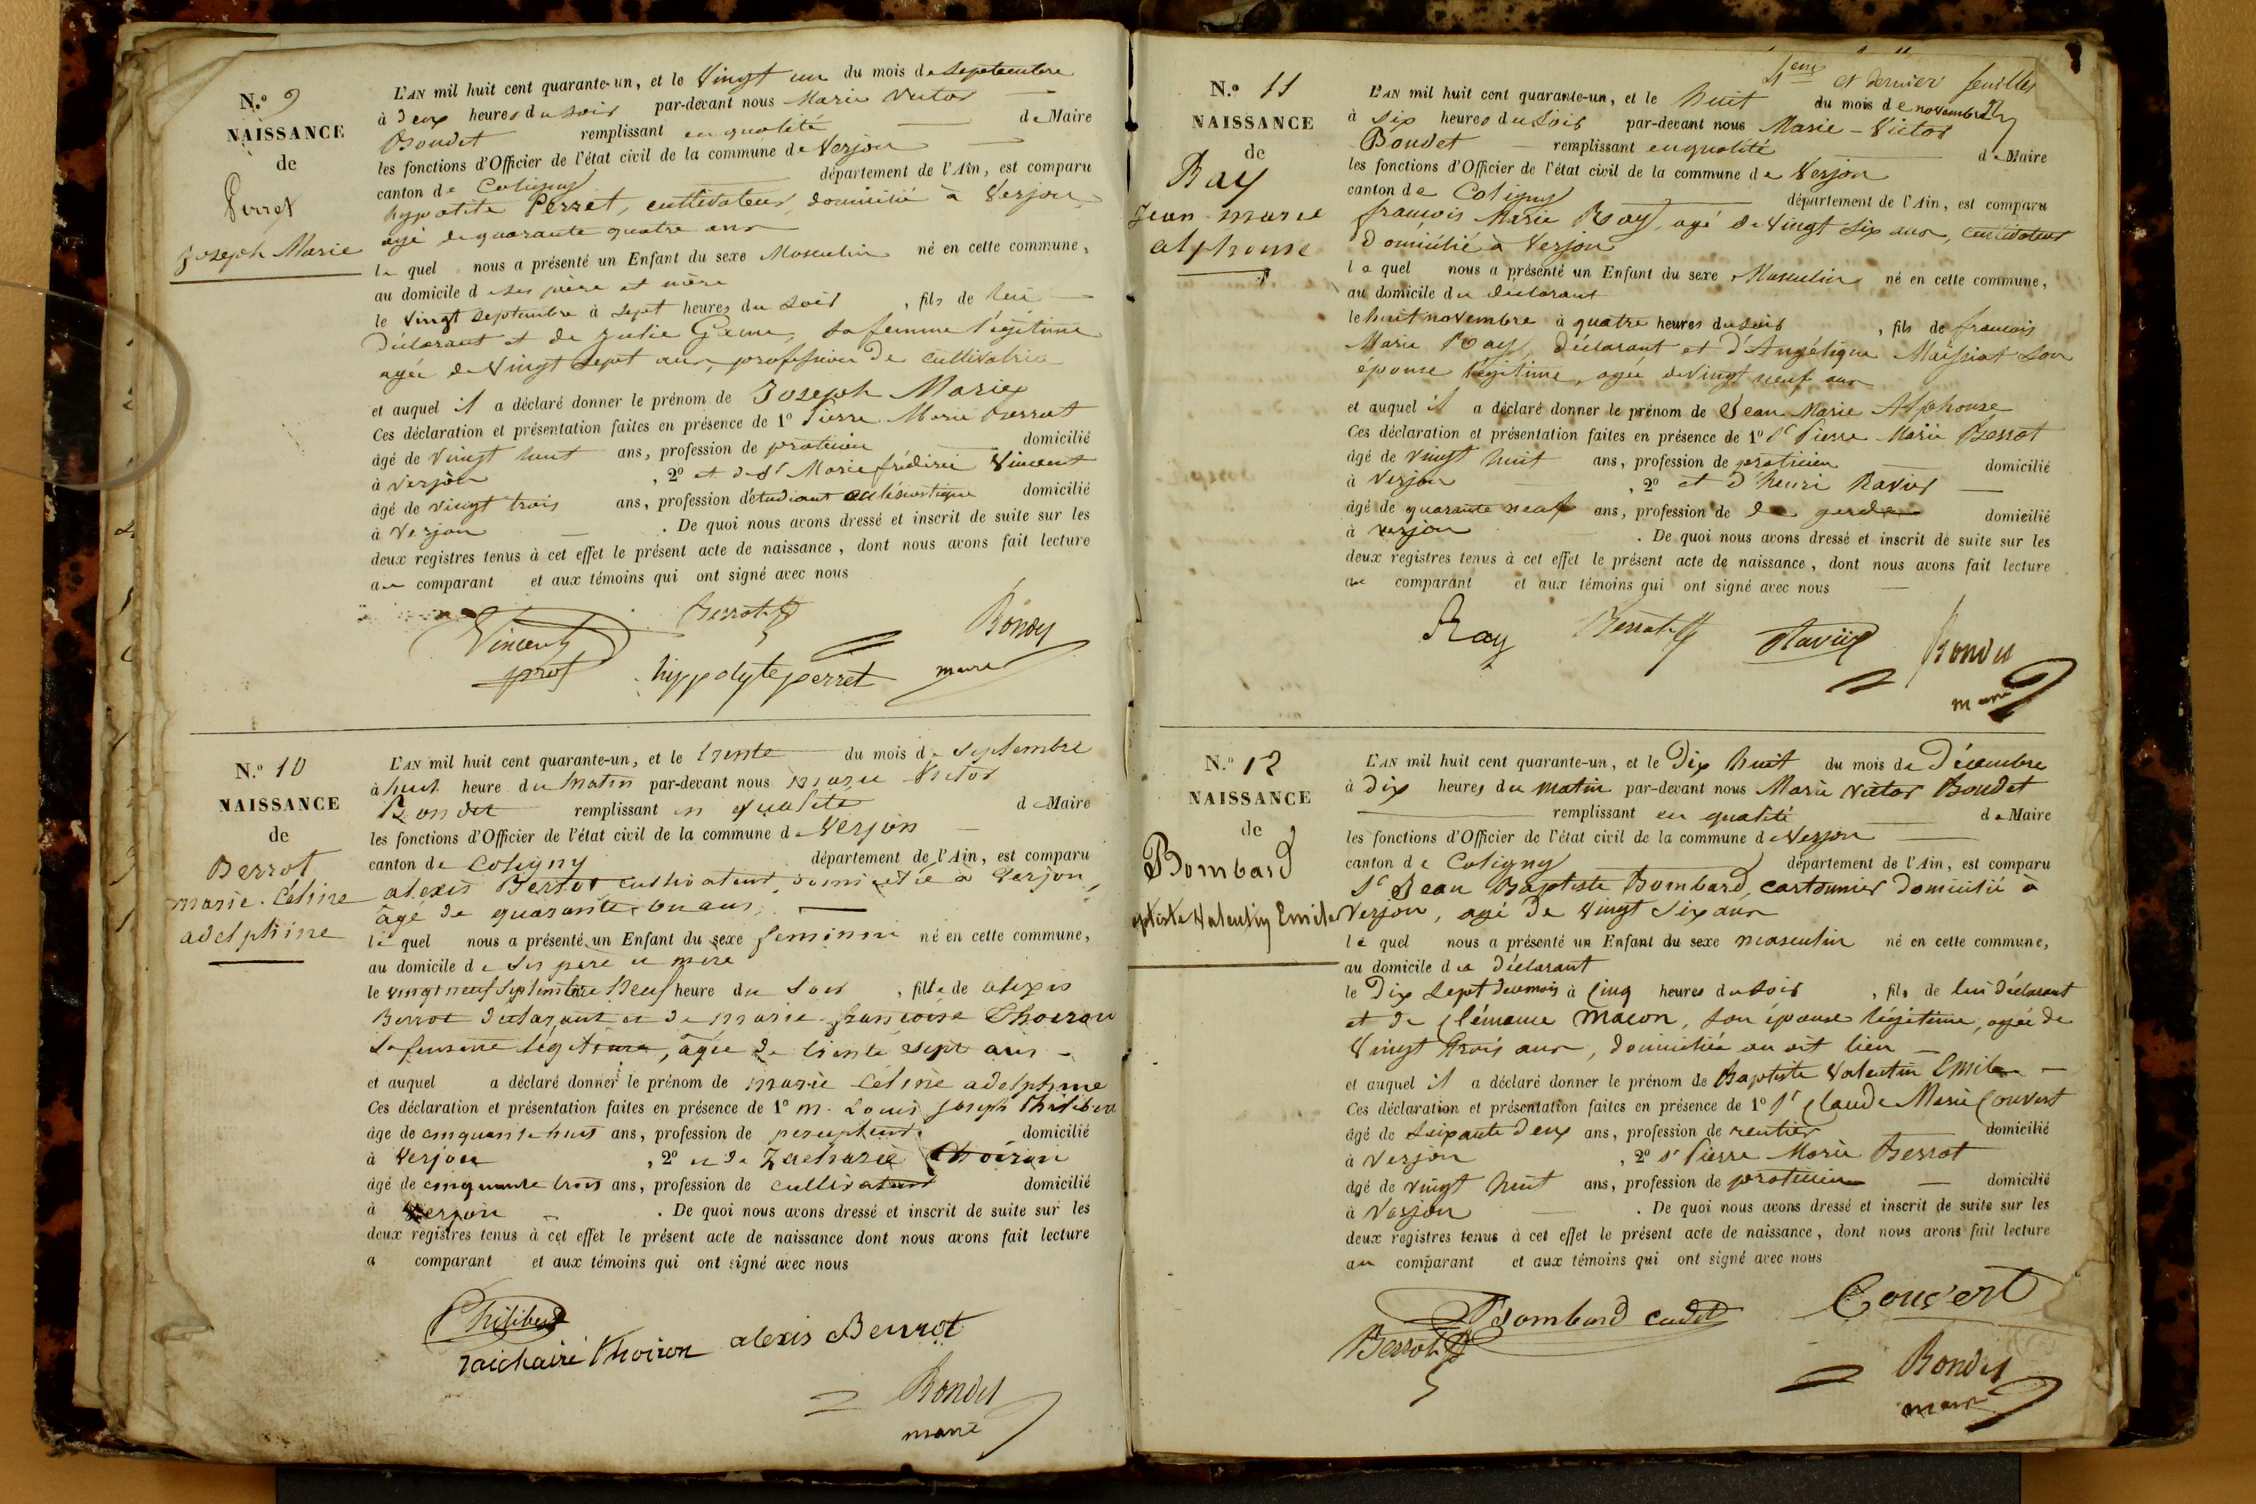 N.o 9
NAISSANCE
de
Perret
Joseph Marie
L'AN mil huit cent quarante-un, et le vingt un du mois de septembre
à deux heures du soir par-devant nous Marie Victor
Bondet remplissant en qualité de Maire
les fonctions d'Officier de l'état civil de la commune de Verjon
canton de Coligny département de l'Ain, est comparu
hypolite Perret, cultivateur, domicilié à Verjon,
agé de quarante quatre ans
le quel nous a présenté un Enfant du sexe Masculin né en cette commune,
au domicile de ses père et mère
le vingt septembre à sept heures du soir, fils de lui
déclarant et de Julie, sa femme légitime
agée de vingt sept ans, profession de cultivatrice
et auquel il a déclaré donner le prénom de Joseph Marie
Ces déclaration et présentation faites en présence de 1o Pierre Marie Berrot
âgé de vingt huit ans, profession de praticien domicilié
à Verjon, 2o et de Sr Marie frédéric Vincent
âgé de vingt trois ans, profession d'étudiant ecclésiastique domicilié
à Verjon. De quoi nous avons dressé et inscrit de suite sur les
deux registres tenus à cet effet le présent acte de naissance, dont nous avons fait lecture
au comparant et aux témoins qui ont signé avec nous
Berrot
Vincent
prof
hippolyte perret
Bondet
maire
N.o 10
NAISSANCE
de
Berrot
marie. Céline
adelphine
L'AN mil huit cent quarante-un, et le trente du mois de septembre
à huit heure du matin par-devant nous marie Victor
Bondet remplissant en qualité de Maire
les fonctions d'Officier de l'état civil de la commune de Verjon
canton de Coligny département de l'Ain, est comparu
alexis Berrot cultivateur, domicilié à Verjon,
âgé de quarante-un ans,
le quel nous a présenté un Enfant du sexe feminin né en cette commune,
au domicile de ses père et mère
le vingt neuf septembre neuf heure du soir, fille de alexis
Berrot déclarant et de marie françoise Choiron
sa femme légitime, âgée de trente sept ans
et auquel a déclaré donner le prénom de marie Céline adelphine
Ces déclaration et présentation faites en présence de 1o m. Louis Joseph Philibert
âge de cinquante huit ans, profession de percepteur domicilié
à Verjon, 2o et de Zacharie Choiron
âgé de cinquante trois ans, profession de cultivateur domicilié
à Verjon. De quoi nous avons dressé et inscrit de suite sur les
deux registres tenus à cet effet le présent acte de naissance dont nous avons fait lecture
a comparant et aux témoins qui ont signé avec nous
Philibert
Zaichairé Choiron alexis Berrot
Bondet
maire
4eme et dernier feuillet
N.o 11
NAISSANCE
de
Ray
Jean marie
alphonse
L'AN mil huit cent quarante-un, et le huit du mois de novembre
à six heures du soir par-devant nous Marie-Victor
Bondet remplissant en qualité de Maire
les fonctions d'Officier de l'état civil de la commune de Verjon
canton de Coligny département de l'Ain, est comparu
françois Marie Ray, agé de vingt six ans, cultivateur
domicilié à Verjon
le quel nous a présenté un Enfant du sexe Masculin né en cette commune,
au domicile du déclarant
le huit novembre à quatre heures du soir, fils de francois
Marie Ray, déclarant et d'Angélique Maissiat son
épouse légitime, agée de vingt neuf ans
et auquel il a déclaré donner le prénom de Jean Marie Alphonse
Ces déclaration et présentation faites en présence de 1o Sr Pierre Marie Berrot
âgé de vingt huit ans, profession de praticien domicilié
à Verjon, 2o et d'henri Ravier
âgé de quarante neuf ans, profession de garde domicilié
à verjon. De quoi nous avons dressé et inscrit de suite sur les
deux registres tenus à cet effet le présent acte de naissance, dont nous avons fait lecture
au comparant et aux témoins qui ont signé avec nous
Ray Berrot Ravier Bondet
maire
N.o 12
NAISSANCE
de
Bombard
Valentin Emile
L'AN mil huit cent quarante-un, et le dix huit du mois de Décembre
à dix heures du matin par-devant nous Marie victor Bondet
remplissant en qualité de Maire
les fonctions d'Officier de l'état civil de la commune de Verjon
canton de Coligny département de l'Ain, est comparu
Sr Jean Baptiste Bombard, cartonnier domicilié à
Verjon, agé de vingt six ans
le quel nous a présenté un Enfant du sexe masculin né en cette commune,
au domicile du déclarant
le dix sept du mois à cinq heures du soir, fils de lui déclarant
et de Clémence Macon, son épouse légitime, agée de
vingt trois ans, domiciliée au dit lieu
et auquel il a déclaré donner le prénom de Baptiste Valentin Emile
Ces déclaration et présentation faites en présence de 1o Sr Claude Marie Couvert
âgé de soixante deux ans, profession de rentier domicilié
à Verjon, 2o Sr Pierre Marie Berrot
âgé de vingt huit ans, profession de praticien domicilié
à Verjon. De quoi nous avons dressé et inscrit de suite sur les
deux registres tenus à cet effet le présent acte de naissance, dont nous avons fait lecture
au comparant et aux témoins qui ont signé avec nous
Bombard cadet Couvert
Berrot
Bondet
maire